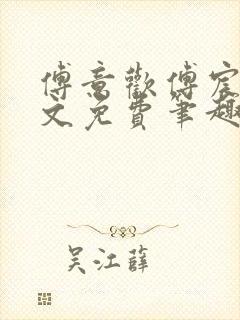 傅意歡傅宸
文免費筆趣
吴江薛